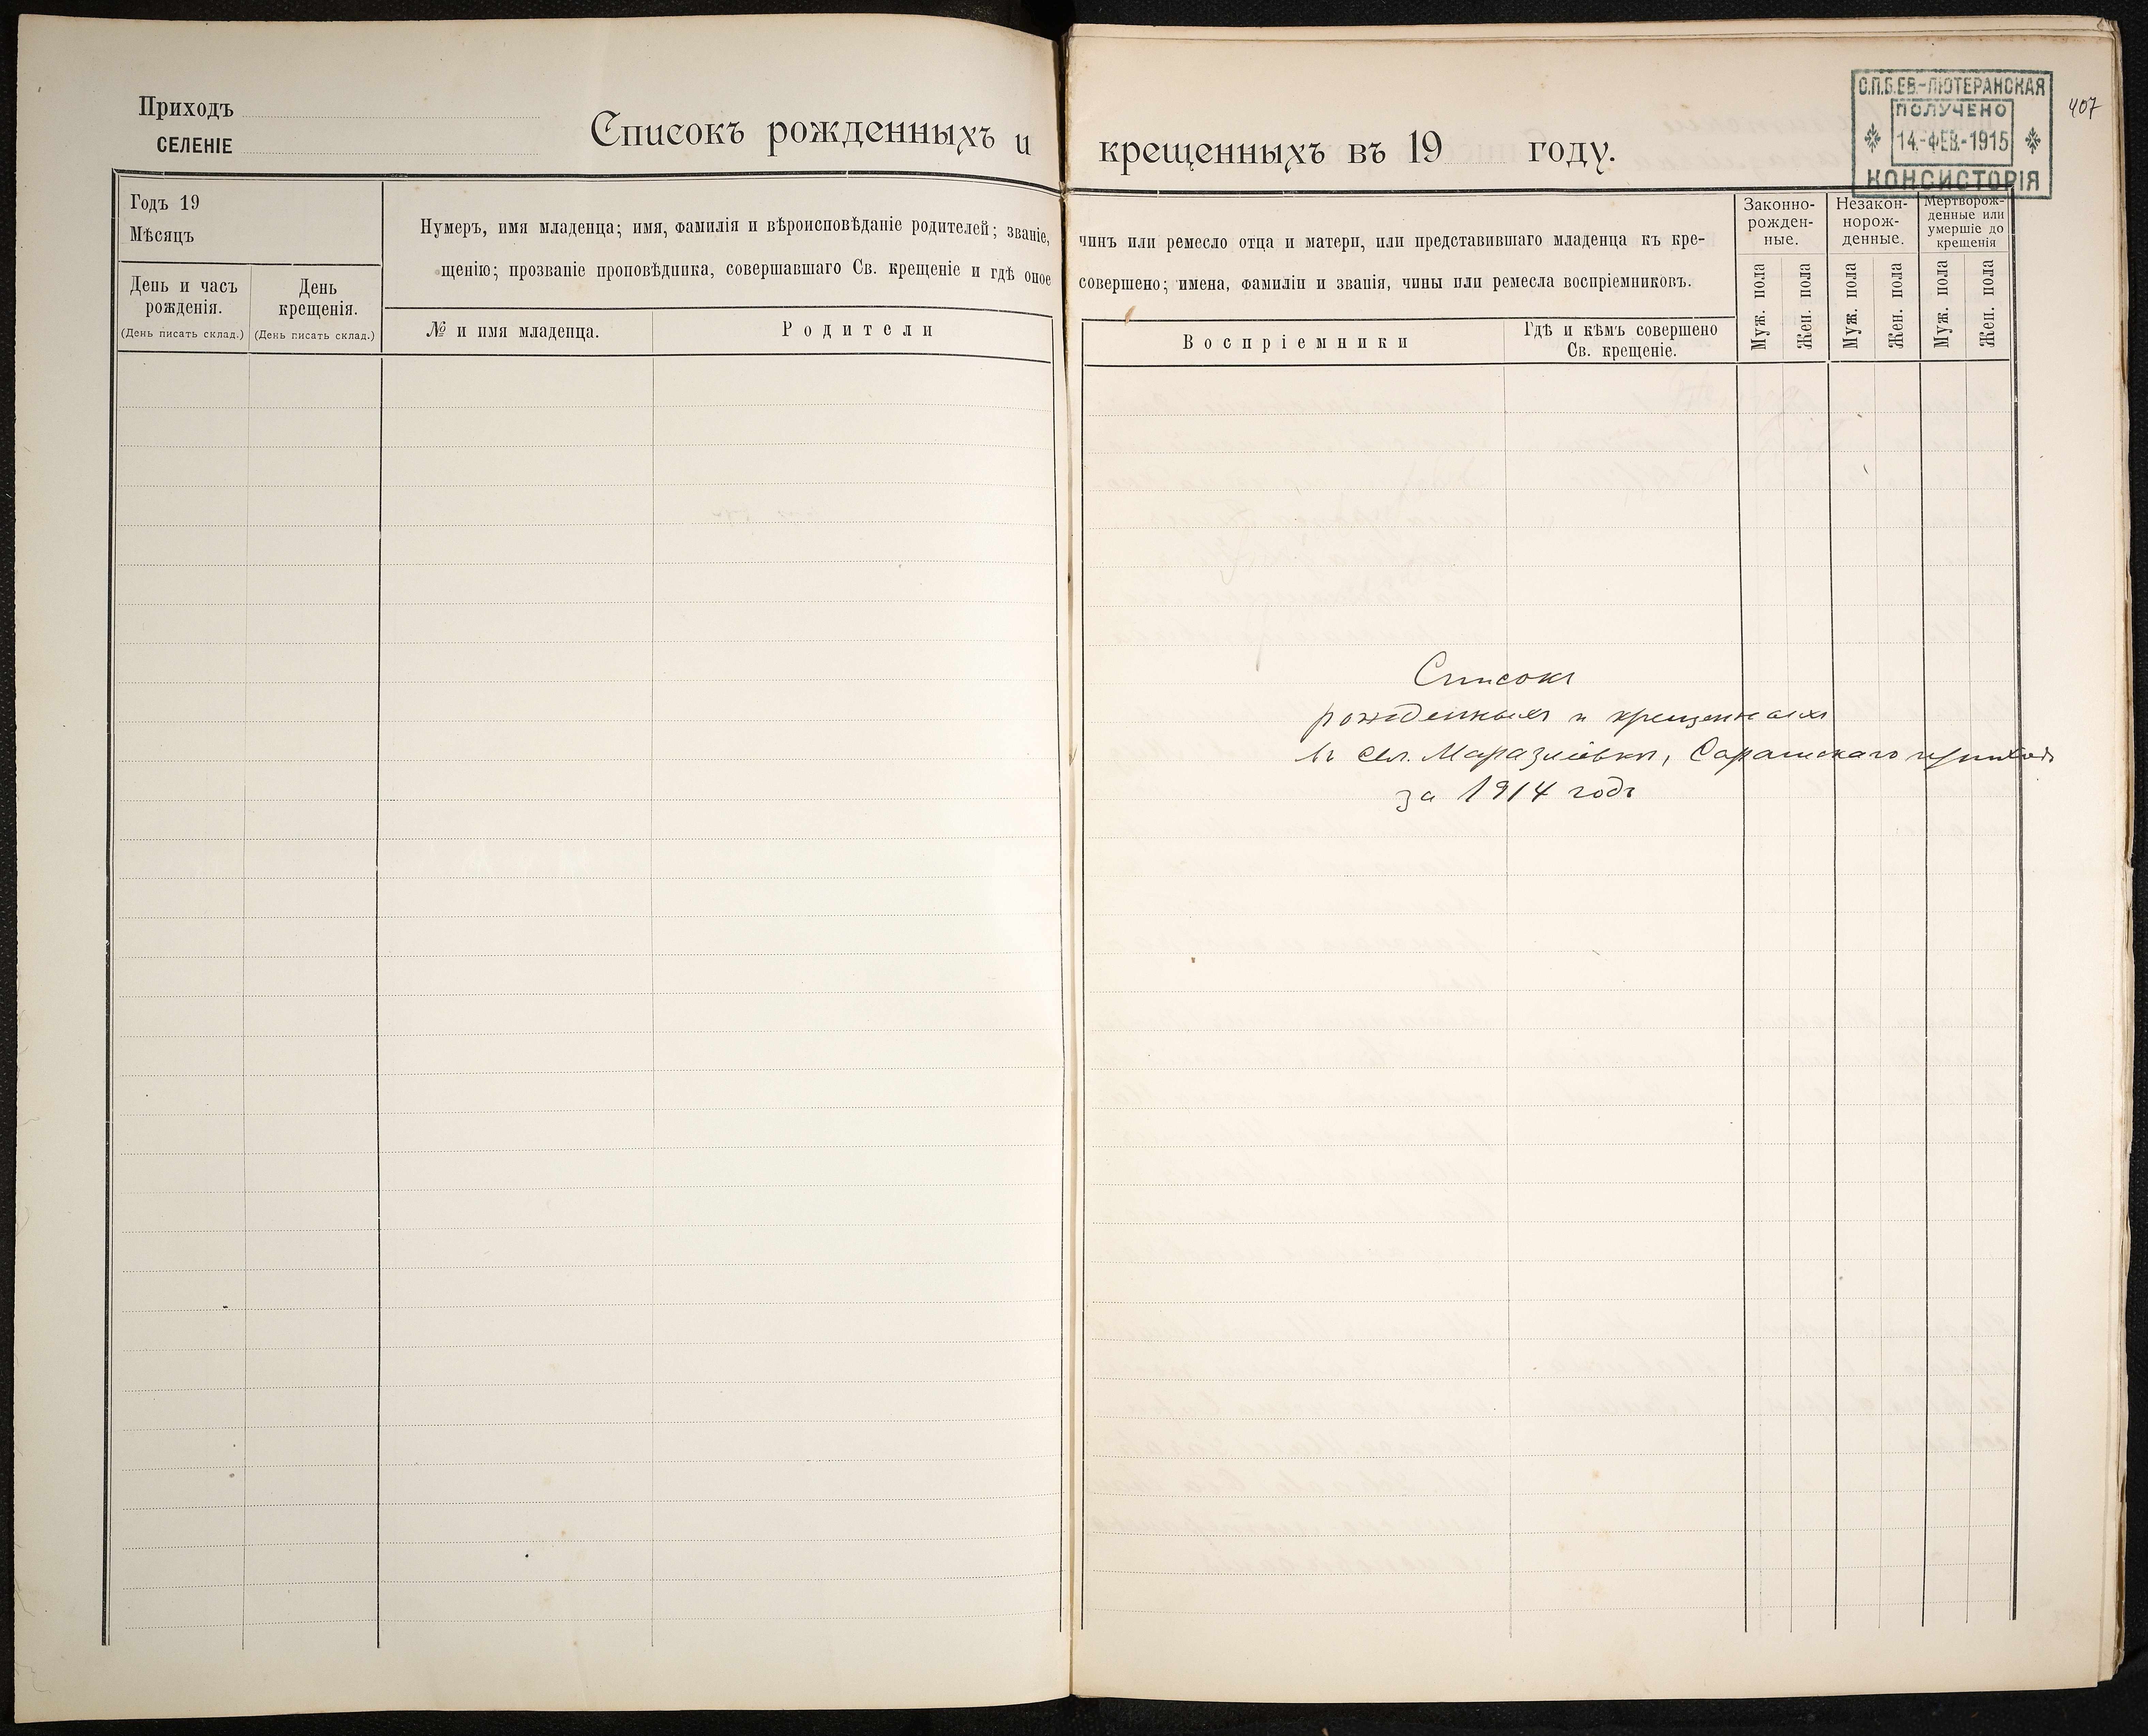 Приходъ
СЕЛЕНІЕ
Списокъ рожденныхъ и крещенныхъ въ 19 году.
С.П.Б.ЕВ.-ЛЮТЕРАНСКАЯ
ПОЛУЧЕНО
14.-ФЕВ.-1915
КОНСИСТОРІЯ
407
Годъ 19
Мѣсяцъ
День и часъ
рожденія.
(День писать склад.)
День
крещенія.
(День писать склад.)
Нумеръ, имя младенца; имя, фамилія и вѣроисповѣданіе родителей; званіе, чинъ или ремесло отца и матери, или представившаго младенца къ кре-
щенію; прозваніе проповѣдника, совершавшаго Св. крещеніе и гдѣ оное совершено; имена, фамиліи и званія, чины или ремесла воспріемниковъ.
№ и имя младенца.
Родители
Воспріемники
Гдѣ и кѣмъ совершено
Св. крещеніе.
Законно-
рожден-
ные.
Незакон-
норож-
денные.
Мертворож-
денные или
умершіе до
крещенія
Муж. пола
Жен. пола
Муж. пола
Жен. пола
Муж. пола
Жен. пола
Списокъ
рожденныхъ и крещенныхъ
въ сел. Маразліевки, Саратскаго прихода
за 1914 годъ